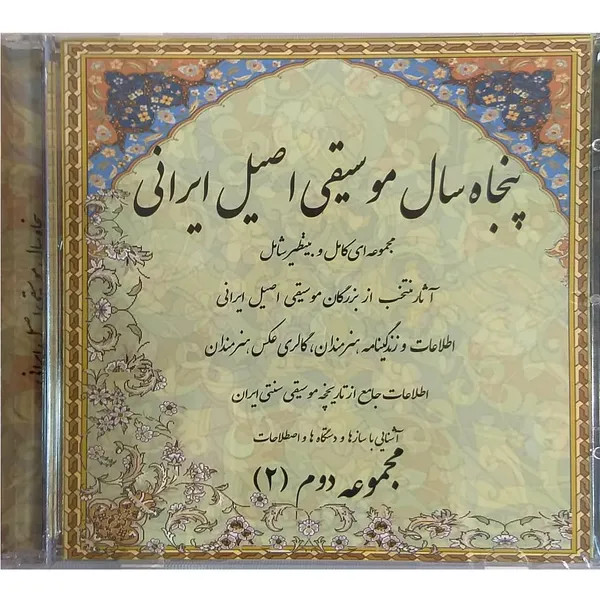 پنجاه سال موسیقی اصیل ایرانی
مجموعه ای کامل و بینظیر شامل
آثار منتخب از بزرگان موسیقی اصیل ایرانی
اطلاعات و زندگینامه هنرمندان، گالری عکس هنرمندان
اطلاعات جامع از تاریخچه موسیقی سنتی ایران
آشنایی با سازها و دستگاه ها و اصطلاحات
مجموعه دوم (۲)
پنجاه سال موسیقی اصیل ایرانی